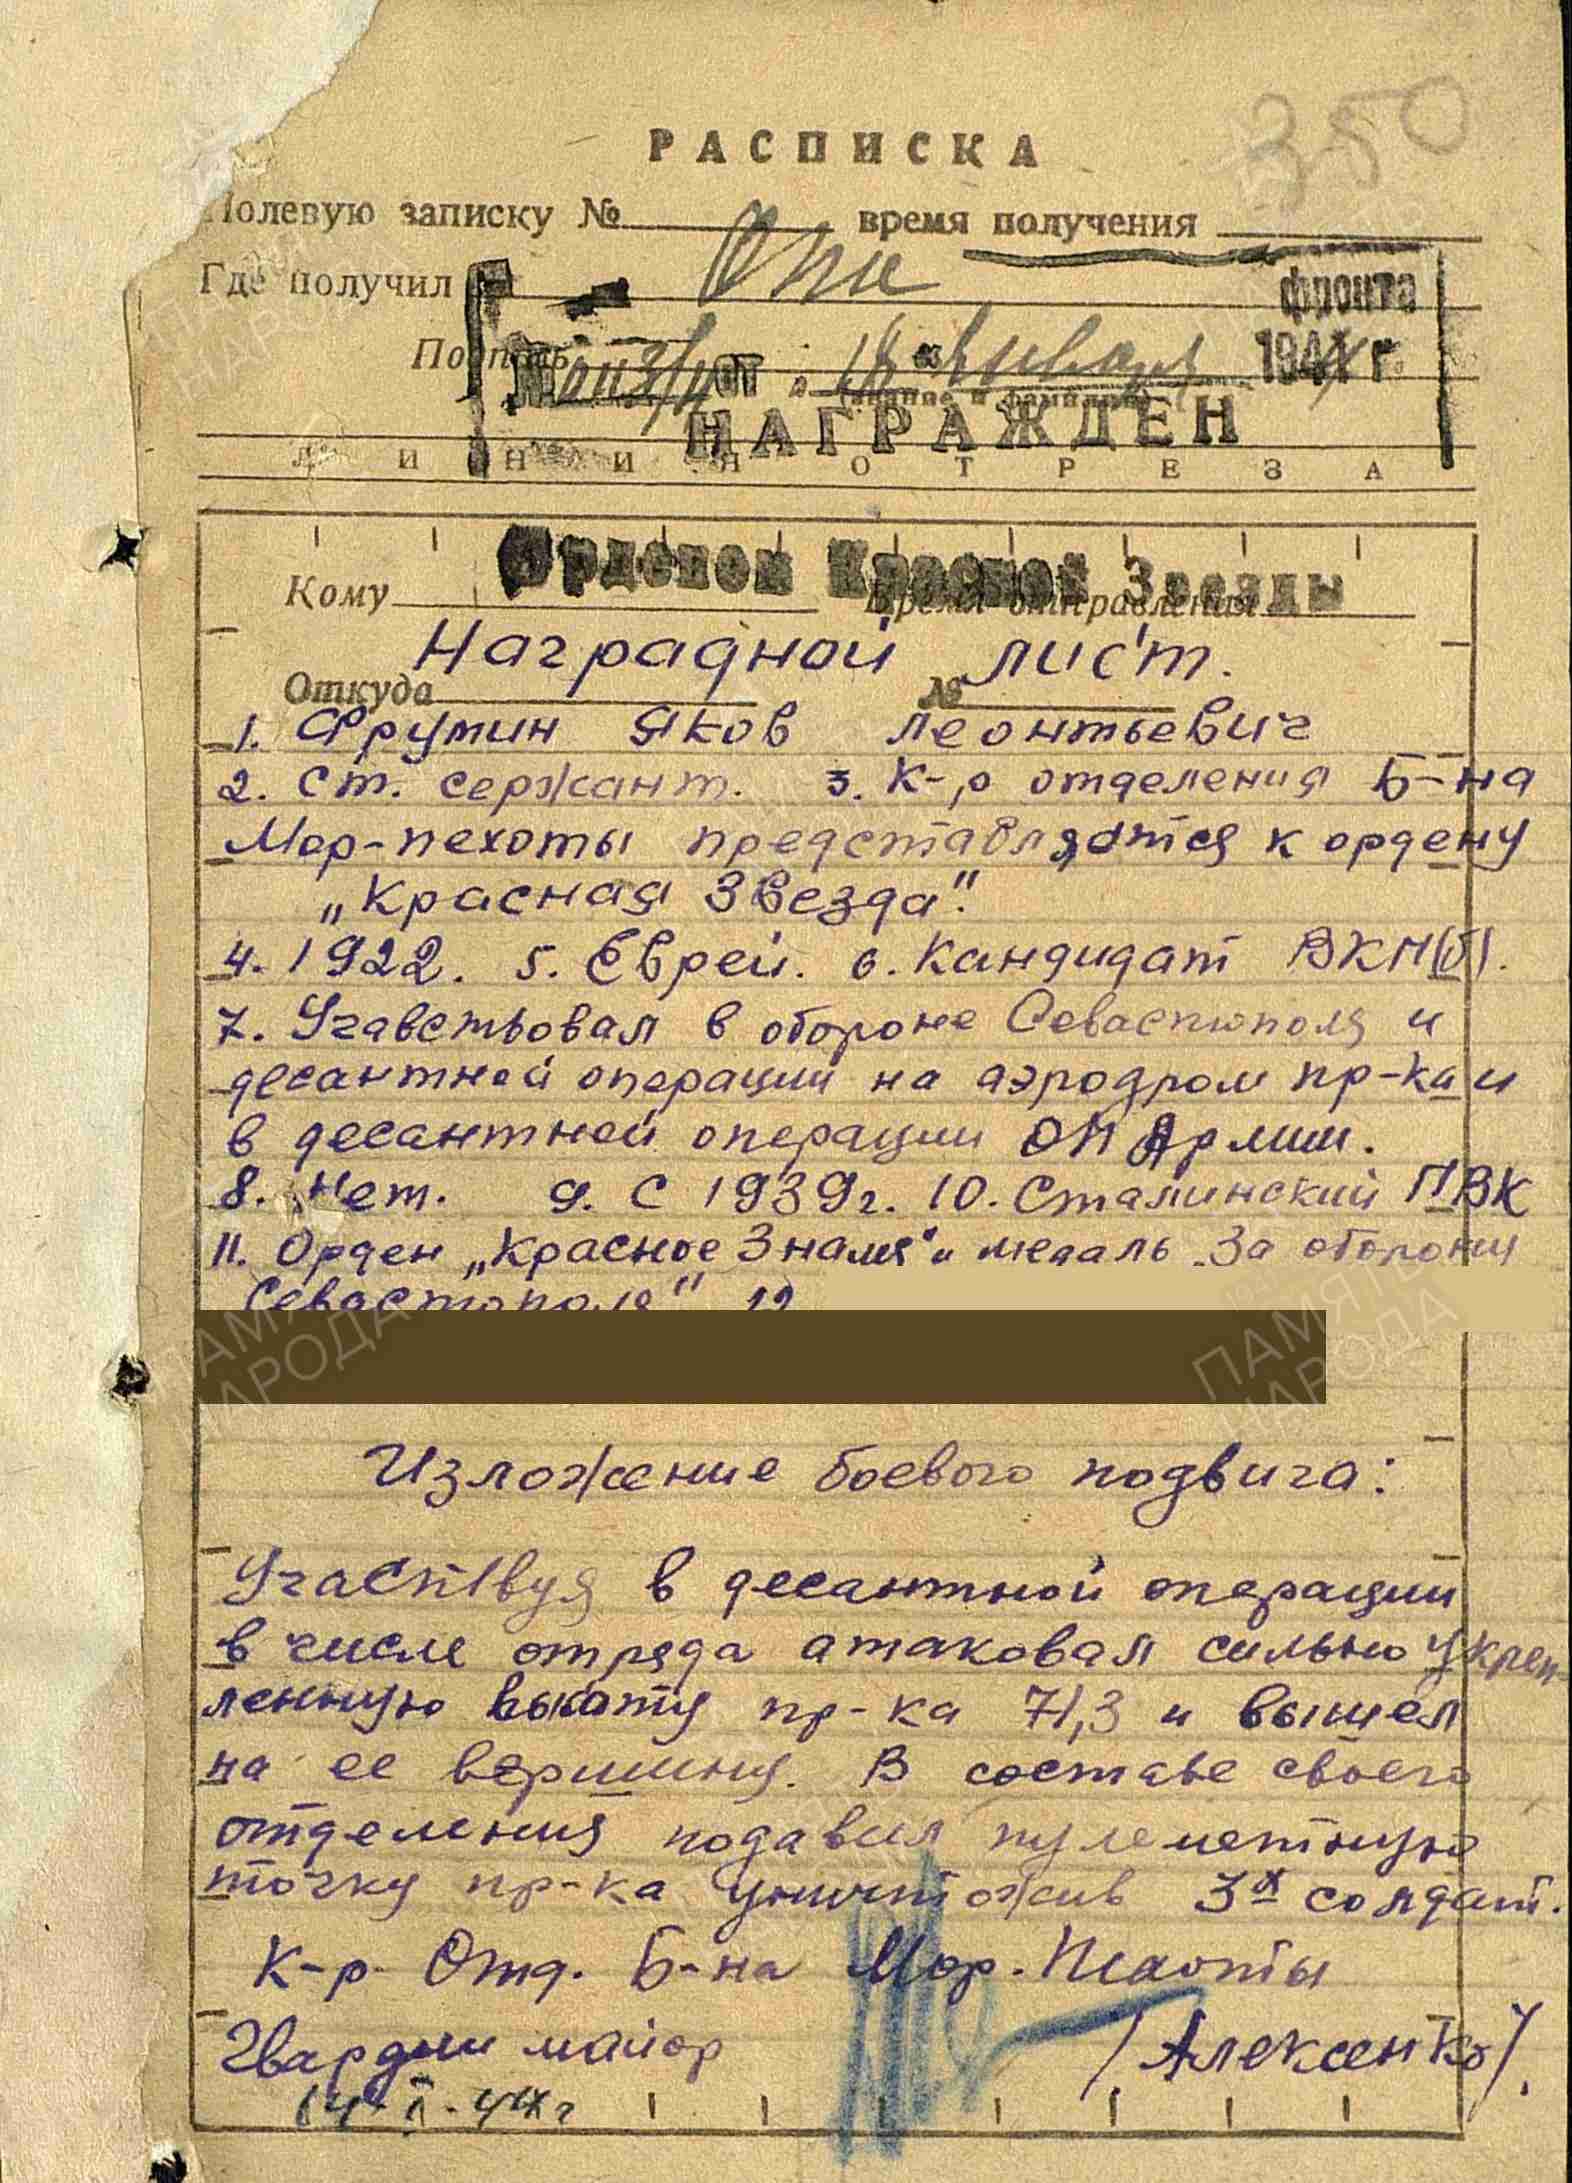 350
РАСПИСКА
Полевую записку № время получения
Где получил Опи фронта
Подпись № от „18“ января 1944 г.
(звание и фамилия)
НАГРАЖДЕН
ЛИНИЯ ОТРЕЗА
Орденом Красной Звезды
Кому Время отправления
Наградной лист.
Откуда №
1. Фрумин Яков Леонтьевич
2. Ст. сержант. 3. К-р отделения Б-на
Мор-пехоты представляется к ордену
„Красная Звезда“.
4. 1922. 5. Еврей. 6. Кандидат ВКП(б).
7. Учавствовал в обороне Севастополя и
десантной операции на аэродром пр-ка и
в десантной операции ОП Армии.
8. Нет. 9. С 1939г. 10. Сталинский ГВК
11. Орден „Красное Знамя“ и медаль „За оборону
Севастополя“ 12
Изложение боевого подвига:
Участвуя в десантной операции
в числе отряда атаковал сильно укреп-
ленную высоту пр-ка 71,3 и вышел
на ее вершину. В составе своего
отделения подавил пулеметную
точку пр-ка уничтожив 3х солдат.
К-р Отд. Б-на Мор. Пехоты
Гвардии майор /Алексенко/.
14.I.44г
ПАМЯТЬ
НАРОДА